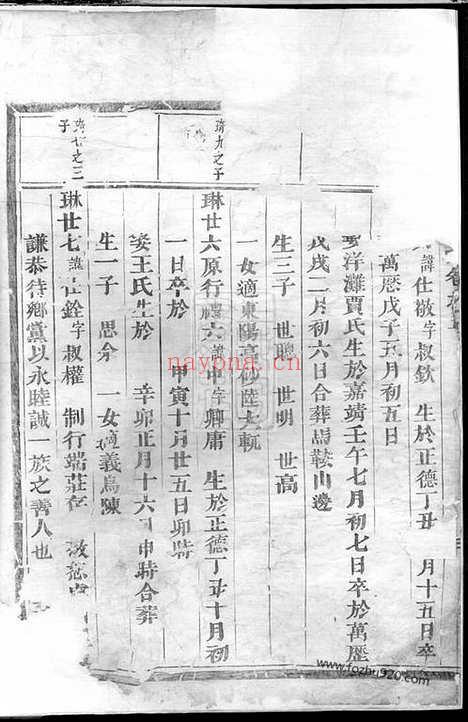 諱仕敬字叔欽 生於正德丁丑 月十五日卒
萬歷戊子五月初五日
洋灘賈氏生於嘉靖壬午七月初七日卒於萬歷
戊戌二月初六日合葬馬鞍山邊
生三子 世聰 世明 世高
一女適東陽 陸大軏
琦九之子
琳廿六原行禮六諱申字卿庸 生於正德丁丑十月初
一日卒於 甲寅十月廿五日卯時
娶王氏生於 辛卯正月十六日申時合葬
生一子 思余 一女適義烏陳
琦七之三
子
琳廿七諱仕銓字叔權 制行端莊
謙恭待鄉黨以永睦誠一族之善人也
nayona.cn
www.fozhu920.com